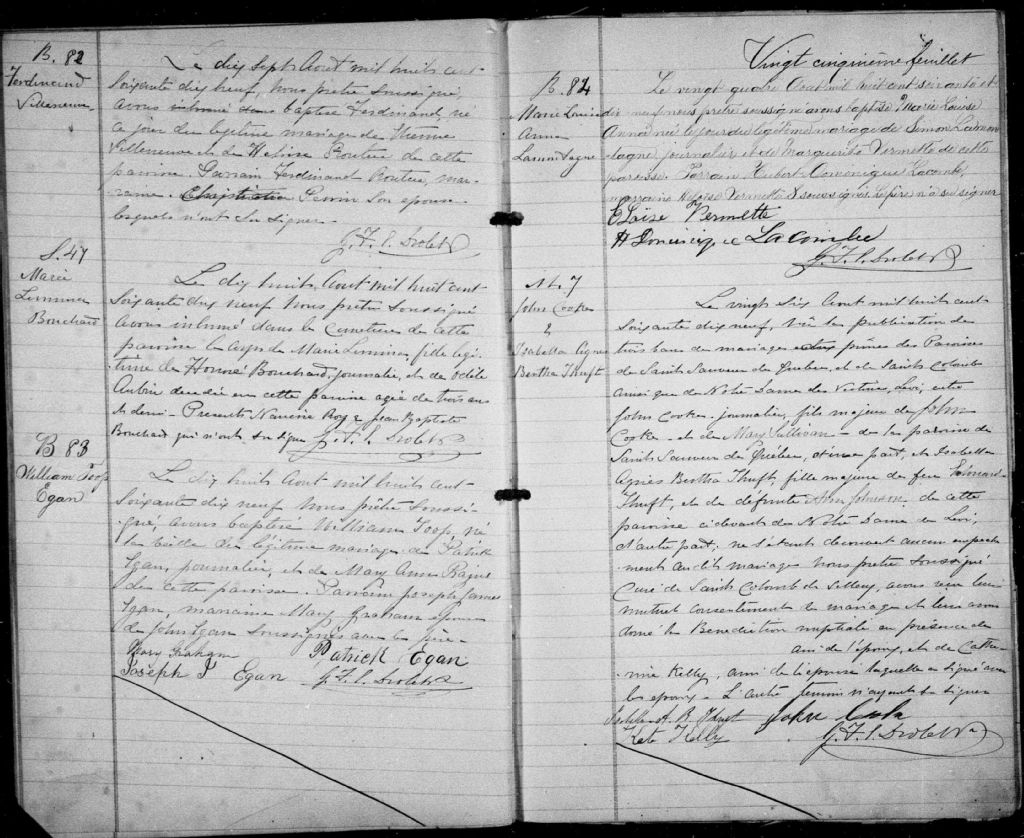 B. 82
Ferdinand
Villeneuve
Le dix sept Aout mil huit cent
soixante dix neuf, nous prêtre soussigné,
avons inhumé dans baptise Ferdinand, né
ce jour du legitime mariage de Etienne
Villeneuve et de Helène Routier de cette
paroisse. Parrain Ferdinand Routier, mar-
raine Christine Perrin son epouse
lesquels n'ont su signer.
G. F. E. Drolet Ptr
S. 47
Marie
Luminea
Bouchard
Le dix huit Aout mil huit cent
soixante dix neuf Nous prêtre soussigné
avons inhumé dans le Cimetiere de cette
paroisse le corps de Marie Luminea fille legi-
time de Honoré Bouchard, journalier, et de Odile
Aubin decedée en cette paroisse agée de trois ans
et demi. Presents Narcisse Roy & Jean Baptiste
Bouchard qui n'ont su signer G. F. E. Drolet Ptr
B 83
William Toop
Egan
Le dix huit Aout mil huit cent
soixante dix neuf Nous prêtre soussi-
gné, avons baptisé William Toop, né
la veille du légitime mariage de Patrick
Egan, journalier, et de Mary Ann
de cette paroisse. Parrain Joseph James
Egan, marraine Mary Graham epouse
de John Egan soussignés avec le père.
Mary Graham Patrick Egan
Joseph J Egan G. F. E. Drolet Ptr
Vingt cinquième feuillet
B. 84
Marie Louise
Anna
Lamontagne
Le vingt quatre Aout mil huit cent soixante et
dix neuf nous prêtre soussigné avons baptisé Marie Louise
Anna née le jour du légitime mariage de Simon Lamon
tagne, journalier et de Marguerite Vermette de cette
paroisse. Parrain Hubert Dominique Lacombe,
marraine Eloise Vermette soussignés le père n'a su signer
Eloïse Vermette
H Dominique Lacombe
G. F. E. Drolet Ptr
M. 7
John Cooke
&
Isabella Agnes
Bertha Thuft
Le vingt six Aout mil huit cent
soixante dix neuf, vû la publication de
trois bans de mariage aux prônes des Paroisses
de Saint Sauveur de Quebec, et de Saint Colomb
ainsi que de Notre Dame des Victoires, Levi, entre
John Cooke journalier, fils majeur de John
Cooke et de Mary Sullivan de la paroisse de
Saint Sauveur de Quebec, d'une part, et Isabella
Agnès Bertha Thuft, fille majeure de feu Edouard
Thuft, et de défunte Ann Johnson, de cette
paroisse ci devant de Notre Dame de Levi,
d'autre part; ne s'étant decouvert aucun empeche
ments au dit mariage Nous prêtre soussigné
Curé de Saint Colomb de Sillery, avons reçu leur
mutuel consentement de mariage et leur avons
donné la Benediction nuptiale en presence de
ami de l'époux, et de Cathe-
rine Kelly, amie de l'épouse laquelle a signé avec
les epoux. L'autre témoin n'ayant su signer
Isabella A. B. Thuft John Cook
Kate Kelly G. F. E. Drolet Ptr